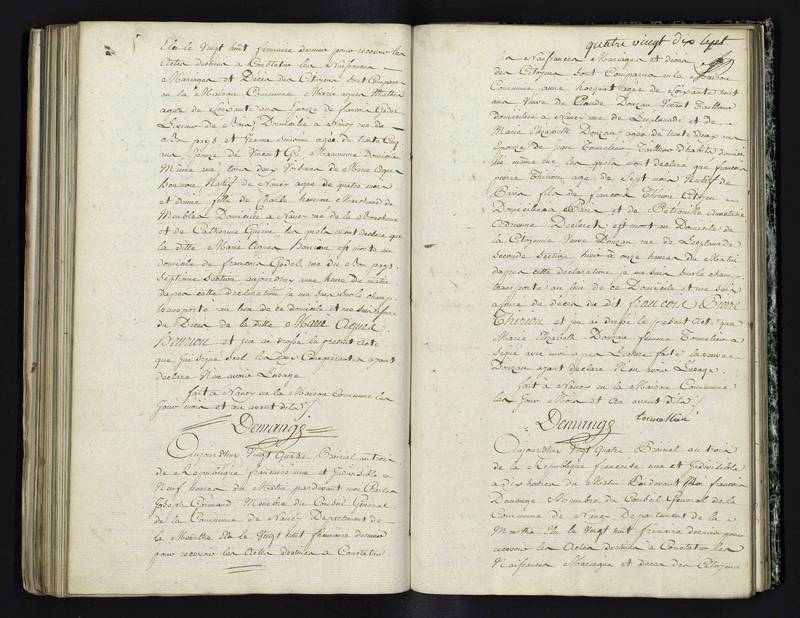 Elu le Vingt huit frimaire dernier pour recevoir les
Actes destinés a Constater les Naissances
Mariages et Décès des Citoyens sont Comparus
en la Maison Commune Marie agnes
agée de Soixante ans Epouse de francois Godel
de Bois Domicilié a Nancy rue du
Bon pays et Jeanne agée de trente Cinq
ans Epouse de Vincent Manœuvre Domicilié
Même rue tous deux Voisins de Marie Agnes
Bonjeune Native de Nancy agée de quatre mois
et demie fille de Charle Marchand de
Meubles Domicilié a Nancy rue de la Boucherie
et de Catherine les quels m'ont declaré que
la ditte Marie Agnes est morte au
domicile de francois Godel, rue du Bon pays
Septieme Section aujourdhuy a une heure du matin
dapres cette declaration je me suis sur le champ
transporté au lieu de ce domicile et me suis assuré
du Décès de la ditte Marie Agnes
et j'en ai dressé le present acte
que j'ai signé seul les deux Comparantes ayant
declaré N'en avoir L'usage
fait a Nancy en la Maison Commune les
Jour mois et an avant dits
Demange
Aujourdhuy Vingt Quatre Prairial an trois
de la République francaise une et Indivisible a
Neuf heures du Matin pardevant moi Charles
Joseph Membre du Conseil General
de la Commune de Nancy Departement de
la Meurthe Elu le Vingt huit frimaire dernier
pour recevoir les Actes destinés a Constater
quatre vingt dix sept
les Naissances Mariages et décès
des Citoyens sont Comparus en la Maison
Commune anne Jacquot agée de Soixante huit
ans Veuve de Claude Donzau Vivant Tailleur
domiciliée a Nancy rue de L'esplanade et de
Marie Elizabeth Donzau agée de trente deux ans
Epouse de jean Tonnelier Tailleur d'habits domicilié
même rue, les quels m'ont declaré que francois
pierre Thirion, agé de Sept mois Natif de
Paris fils de francois Thirion Citoyen
Domicilié a Paris et de Petronille
est mort au Domicile de
la Citoyenne Veuve Donzau rue de L'esplanade
seconde Section hier a onze heures du Matin
dapres cette declaration je me suis sur le champ
transporté au lieu de ce Domicile et me suis
assuré du décès du dit francois Pierre
Thirion et j'en ai dressé le present acte que
Marie Elizabeth Donzau femme Tonnelier a
Signé avec moi apres Lecture faite la veuve
Donzau ayant declaré N'en avoir L'usage.
fait a Nancy en la Maison Commune
les Jour Mois et an avant dits
Demange
Aujourdhuy Vingt Quatre Prairial an trois
de la République francaise une et Indivisible
a Dix heures du Matin Pardevant Moi francois
Demange Membre du Conseil General de la
Commune de Nancy Departement de la
Meurthe Elu le Vingt huit frimaire dernier pour
recevoir les Actes destinés a Constater les
Naissances Mariages et décès des Citoyens